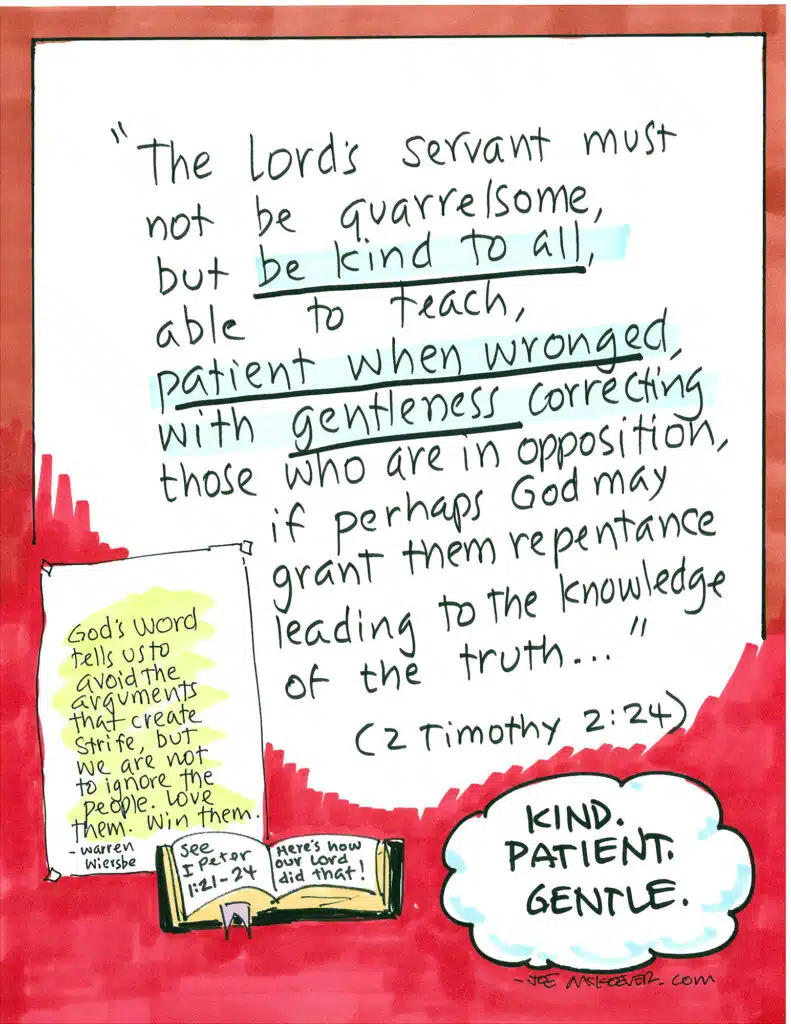 "The Lord's servant must
not be quarrelsome,
but be kind to all,
able to teach,
patient when wronged,
with gentleness correcting
those who are in opposition,
if perhaps God may
grant them repentance
leading to the knowledge
of the truth... "
(2 Timothy 2:24)
God's word
tells us to
avoid the
arguments
that create
strife, but
we are not
to ignore the
people. Love
them. Win them.
- Warren
Wiersbe
See
I Peter
1:21-24
Here's how
our Lord
did that!
KIND.
PATIENT.
GENTLE.
- JOE McKEEVER.com